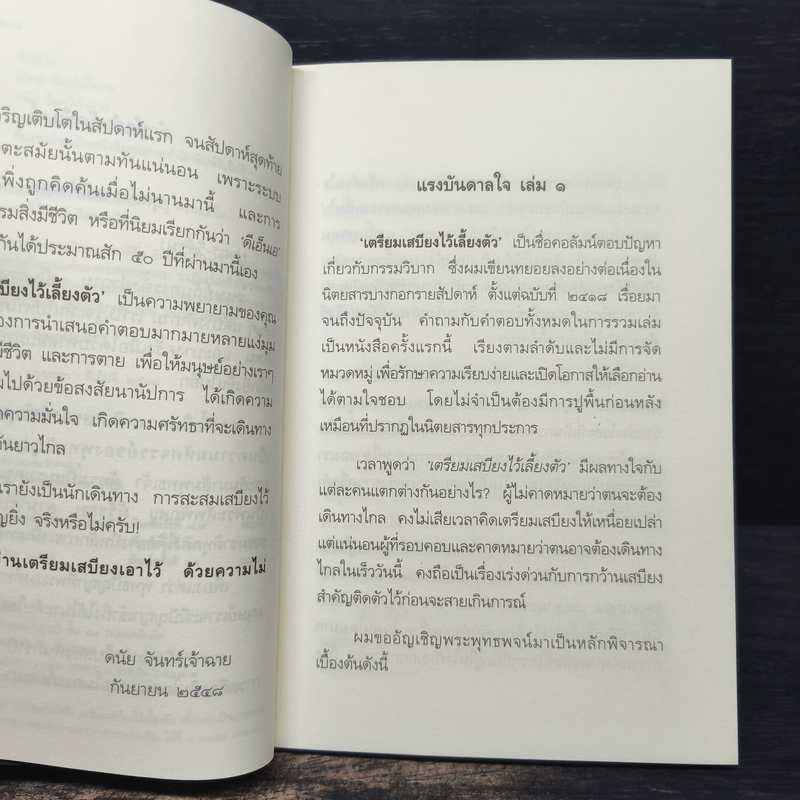 จริญเติบโตในสัปดาห์แรก จนสัปดาห์สุดท้าย
ตะสมัยนั้นตามทันแน่นอน เพราะระบบ
เพิ่งถูกคิดค้นเมื่อไม่นานมานี้ และการ
รมสิ่งมีชีวิต หรือที่นิยมเรียกกันว่า 'ดีเอ็นเอ'
กันได้ประมาณสัก ๕๐ ปีที่ผ่านมานี้เอง
สบียงไว้เลี้ยงตัว' เป็นความพยายามของคุณ
องการนำเสนอคำตอบมากมายหลายแง่มุม
มีชีวิต และการตาย เพื่อให้มนุษย์อย่างเราๆ
มไปด้วยข้อสงสัยนานัปการ ได้เกิดความ
ดความมั่นใจ เกิดความศรัทธาที่จะเดินทาง
อันยาวไกล
เรายังเป็นนักเดินทาง การสะสมเสบียงไว้
ญยิ่ง จริงหรือไม่ครับ!
านเตรียมเสบียงเอาไว้ ด้วยความไม่
ดนัย จันทร์เจ้าฉาย
กันยายน ๒๕๔๘
แรงบันดาลใจ เล่ม ๑
'เตรียมเสบียงไว้เลี้ยงตัว' เป็นชื่อคอลัมน์ตอบปัญหา
เกี่ยวกับกรรมวิบาก ซึ่งผมเขียนทยอยลงอย่างต่อเนื่องใน
นิตยสารบางกอกรายสัปดาห์ ตั้งแต่ฉบับที่ ๒๔๑๘ เรื่อยมา
จนถึงปัจจุบัน คำถามกับคำตอบทั้งหมดในการรวมเล่ม
เป็นหนังสือครั้งแรกนี้ เรียงตามลำดับและไม่มีการจัด
หมวดหมู่ เพื่อรักษาความเรียบง่ายและเปิดโอกาสให้เลือกอ่าน
ได้ตามใจชอบ โดยไม่จำเป็นต้องมีการปูพื้นก่อนหลัง
เหมือนที่ปรากฏในนิตยสารทุกประการ
เวลาพูดว่า 'เตรียมเสบียงไว้เลี้ยงตัว' มีผลทางใจกับ
แต่ละคนแตกต่างกันอย่างไร? ผู้ไม่คาดหมายว่าตนจะต้อง
เดินทางไกล คงไม่เสียเวลาคิดเตรียมเสบียงให้เหนื่อยเปล่า
แต่แน่นอนผู้ที่รอบคอบและคาดหมายว่าตนอาจต้องเดินทาง
ไกลในเร็ววันนี้ คงถือเป็นเรื่องเร่งด่วนกับการกว้านเสบียง
สำคัญติดตัวไว้ก่อนจะสายเกินการณ์
ผมขออัญเชิญพระพุทธพจน์มาเป็นหลักพิจารณา
เบื้องต้นดังนี้